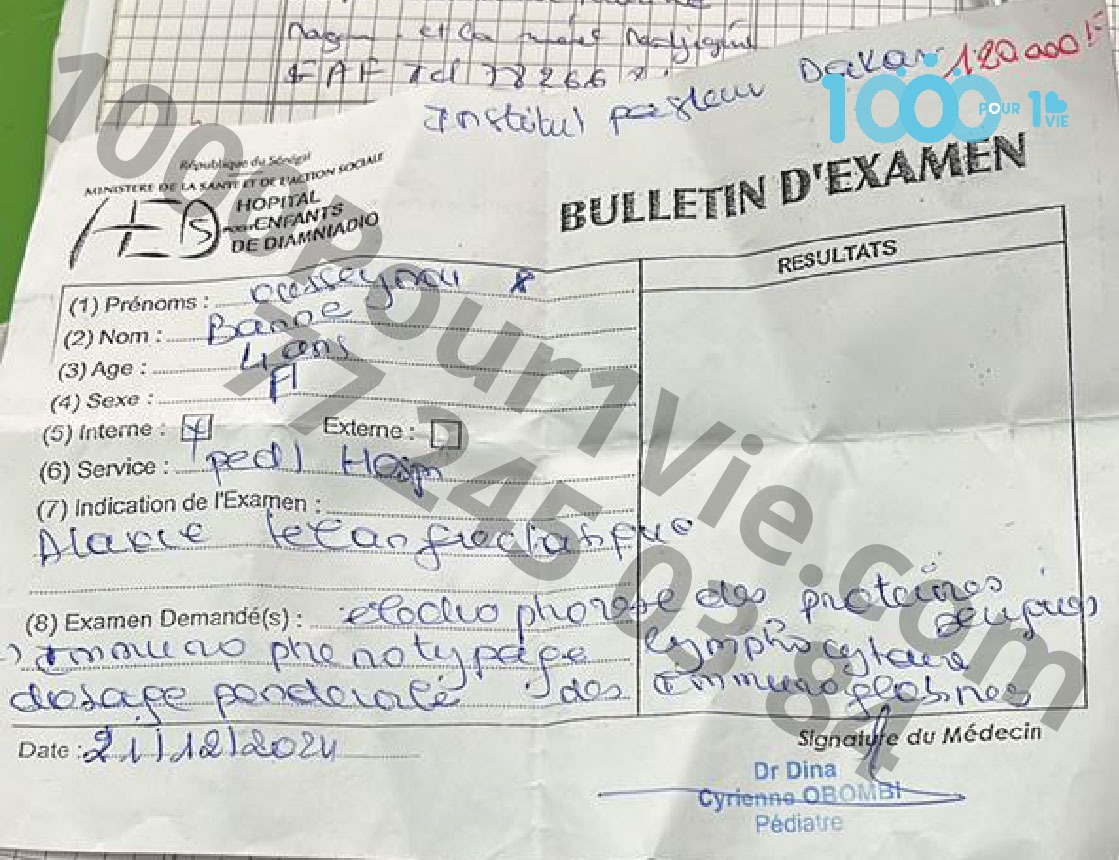 et la
FAF Tel 78266
Institut pasteur Dakar 120 000 F
1000 POUR 1 VIE
République du Sénégal
MINISTERE DE LA SANTE ET DE L'ACTION SOCIALE
HOPITAL
POUR ENFANTS
DE DIAMNIADIO
BULLETIN D'EXAMEN
RESULTATS
(1) Prénoms : ousseynou
(2) Nom : Banne
(3) Age : 4 ans
(4) Sexe :
(5) Interne : Externe :
(6) Service : ped I Hosp
(7) Indication de l'Examen :
Ataxie telangiectasique
(8) Examen Demandé(s) : electrophorese des proteines
seriques
Immuno phenotypage lymphocytaire
dosage ponderale des Immunoglobines
Date : 21/12/2024
Signature du Médecin
Dr Dina
Cyrienne OBOMBI
Pédiatre
1000Pour1Vie.com
77 245 03 84